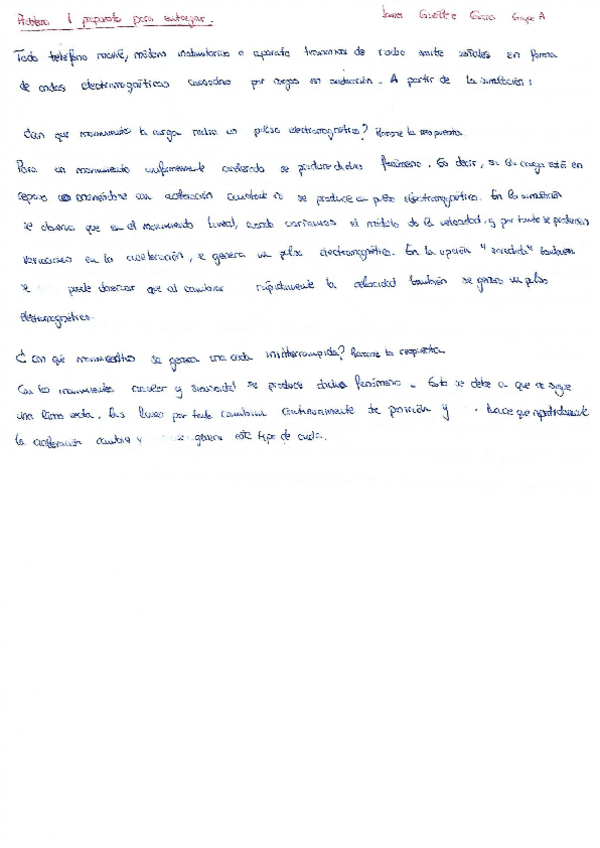 Problema 1 preparado para entregar. Grupo A
Todo teléfono móvil, módem inalámbrico o aparato transmisor de radio emite señales en forma
de ondas electromagnéticas causadas por cargas en aceleración. A partir de la simulación:
¿Con qué movimiento la carga radia un pulso electromagnético? Razone la respuesta.
Para un movimiento uniformemente acelerado se produce dicho fenómeno. Es decir, si la carga está en
reposo o moviéndose con aceleración constante no se produce un pulso electromagnético. En la simulación
se observa que en el movimiento lineal, cuando variamos el módulo de la velocidad, y por tanto se producen
variaciones en la aceleración, se genera un pulso electromagnético. En la opción " " también
se puede observar que al cambiar rápidamente la velocidad también se genera un pulso
electromagnético.
¿Con qué movimientos se genera una onda ininterrumpida? Razone la respuesta.
Con los movimientos circular y sinusoidal se produce dicho fenómeno. Esto se debe a que no sigue
una línea recta, las líneas por tanto cambian continuamente de posición y hace que repetidamente
la aceleración cambie y se genere este tipo de onda.